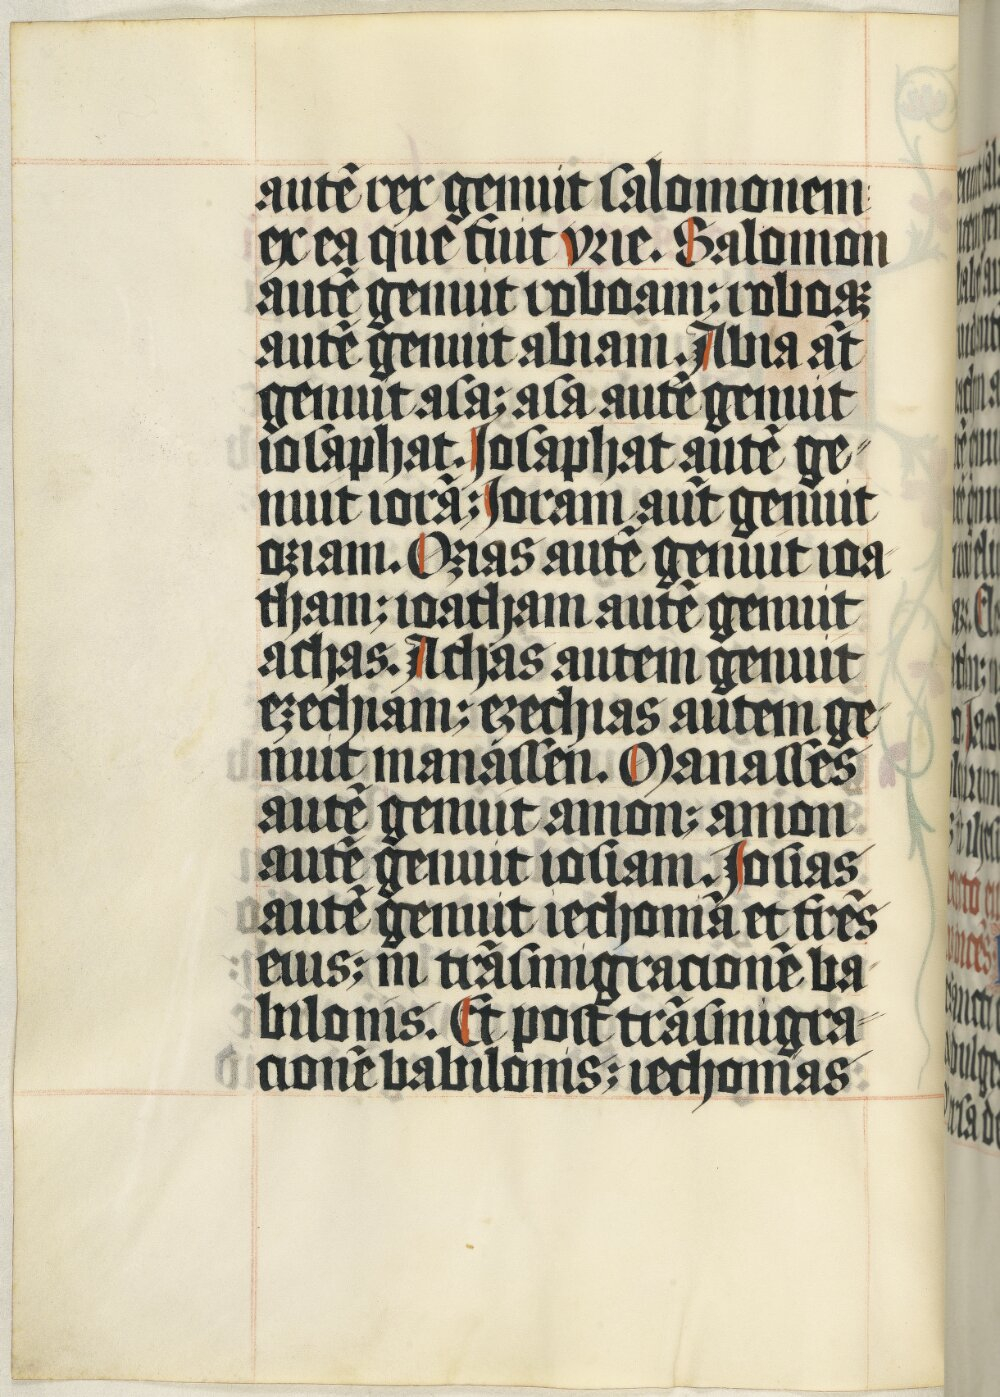 autē rex genuit salomonem
ex ea que fuit vrie. Salomon
autē genuit roboam; roboaꝫ
autē genuit abiam. Abia aūt
genuit asa; asa autē genuit
iosaphat. Josaphat autē ge⸗
nuit iorā; Joram aūt genuit
oziam. Ozias autē genuit ioa
tham; ioatham autē genuit
achas. Achas autem genuit
ezechiam; ezechias autem ge⸗
nuit manassen. Manasses
autē genuit amon; amon
autē genuit iosiam. Josias
autē genuit iechoniā et frēs
eius; in trāsmigracionē ba⸗
bilonis. Et post trāsmigra⸗
cionē babilonis; iechonias